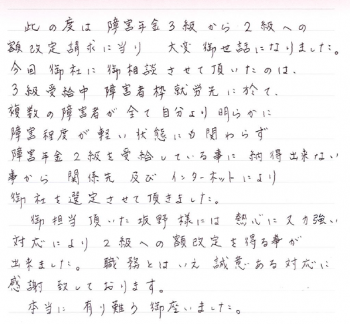 此の度は 障害年金3級から2級への
額改定請求に当り 大変御世話になりました。
今回御社に御相談させて頂いたのは、
3級受給中 障害者枠就労先に於て、
複数の障害者が全て自分より明らかに
障害程度が軽い状態にも関わらず
障害年金2級を受給している事に納得出来ない
事から 関係先及びインターネットにより
御社を選定させて頂きました。
御担当頂いた坂野様には 熱心に又力強い
対応により 2級への額改定を得る事が
出来ました。 職務とはいえ 誠意ある対応に
感謝致しております。
本当に 有り難う御座いました。